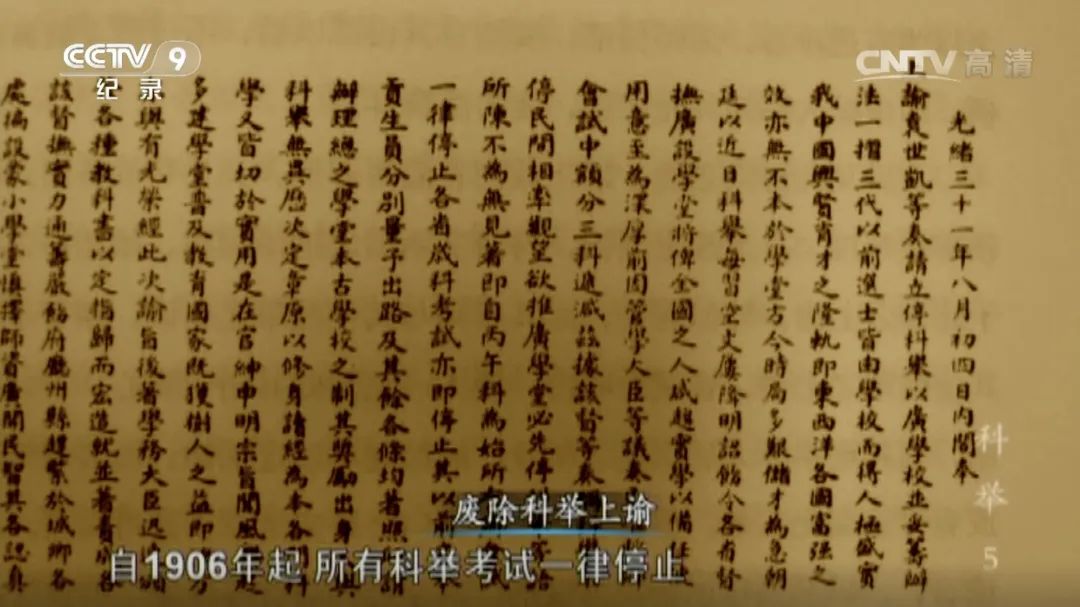 CCTV 9
纪录
CNTV 高清
光緒三十一年八月初四日內閣奉
上諭袁世凱等奏請立停科舉以廣學校並妥籌辦
法一摺三代以前選士皆由學校而得人極盛實
我中國興賢育才之隆軌即東西洋各國富強之
效亦無不本於學堂方今時局多艱儲才為急朝
廷以近日科舉每習空文屢降明詔飭令各省督
撫廣設學堂將俾全國之人咸趨實學以備任
用意至為深厚前因管學大臣等議奏
會試中額分三科遞減茲據該督等奏
停民間相率觀望欲推廣學堂必先停
所陳不為無見著即自丙午科為始所
一律停止各省歲科考試亦即停止其以前
貢生員分別量予出路及其餘各條均著照請
辦理總之學堂本古學校之制其獎勵出身與
科舉無異歷次定章原以修身讀經為本各科
學又皆切於實用是在官紳申明宗旨聞風起
多建學堂普及教育國家既獲樹人之益即方
與有光榮經此次諭旨後著學務大臣迅
各種教科書以定指歸而宏造就並著責各
該督撫實力通籌嚴飭府廳州縣趕緊於城鄉各
處遍設蒙小學堂慎擇師資廣開民智其各認真
科举 5
废除科举上谕
自1906年起 所有科举考试一律停止